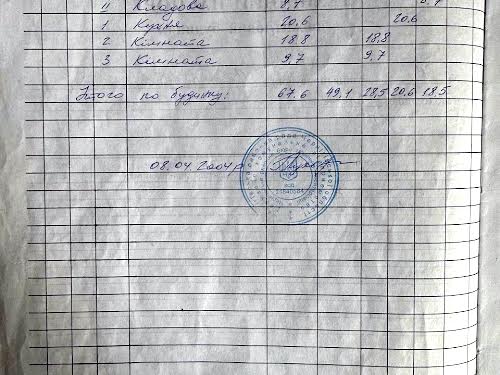 Кладова 8,7 8,7
1 Кухня 20,6 20,6
2 Кімната 18,8 18,8
3 Кімната 9,7 9,7
Итого по будинку: 67,6 49,1 28,5 20,6 18,5
08.04.2004р.